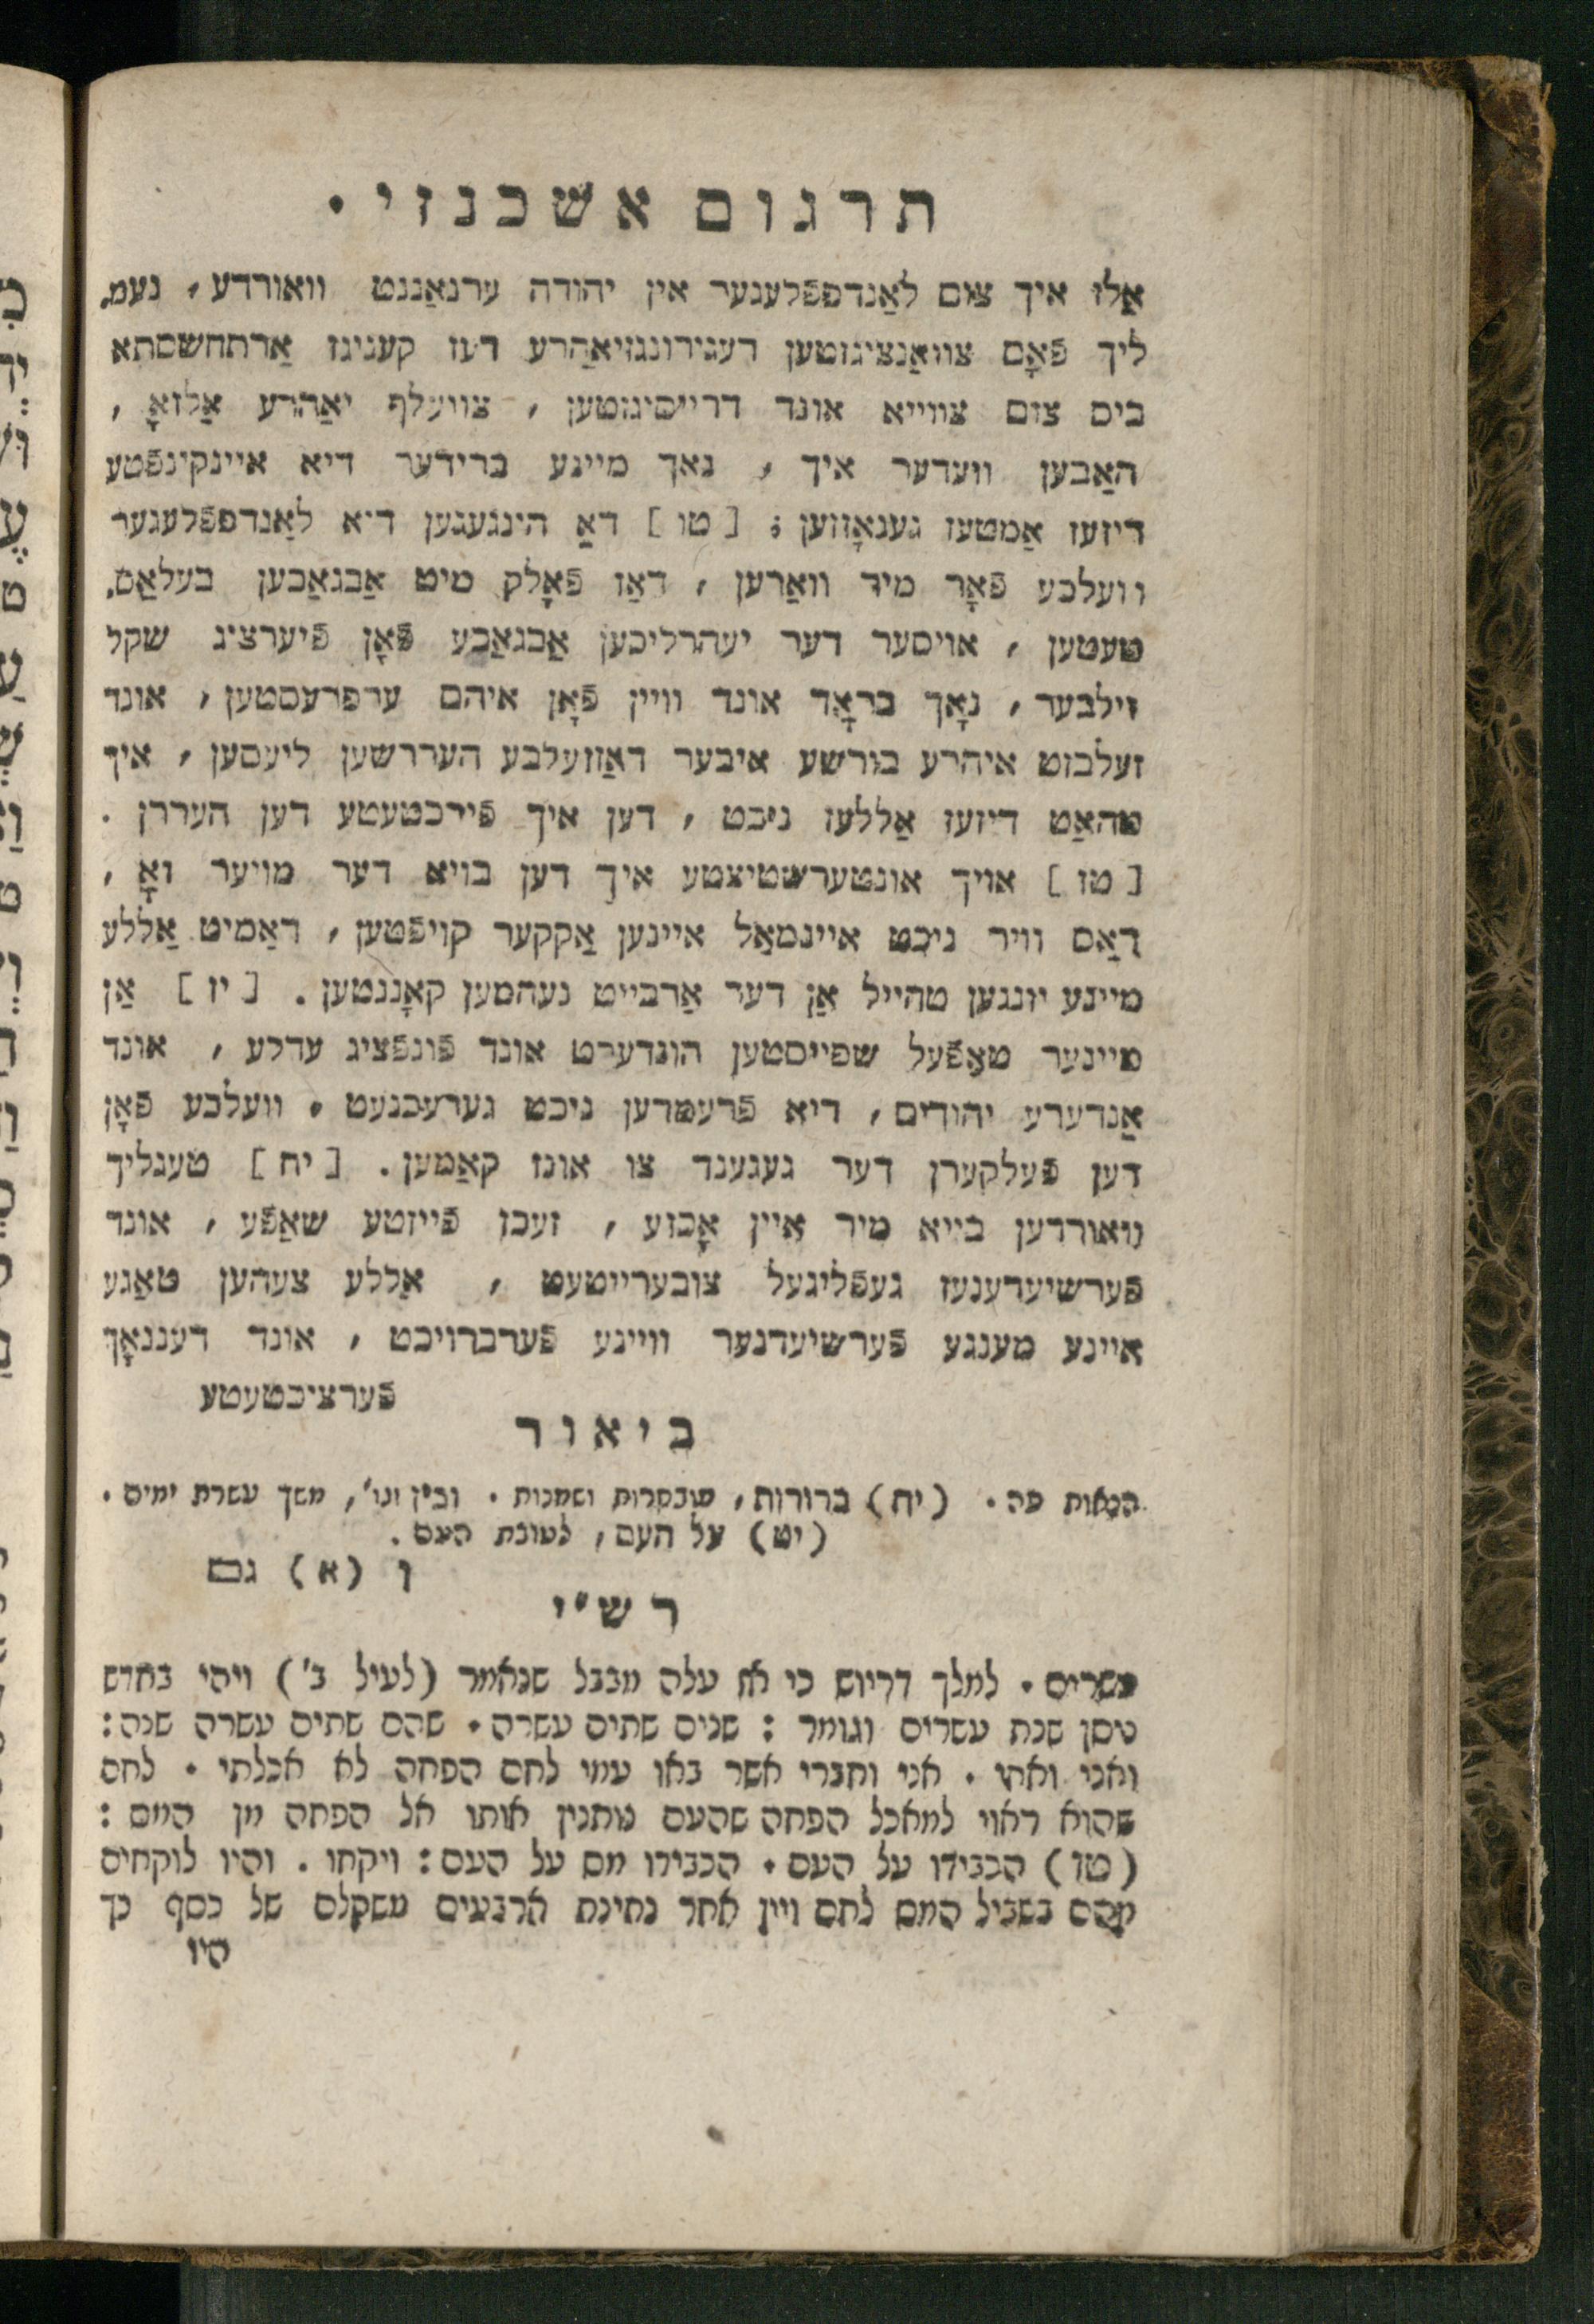 תרגום אשכנזי .
אַלז איך צום לאַנדפפלעגער אין יהודה ערנאַננט וואורדע, נעמ.
ליך פֿאָם צוואַנציגזטען רעגירונגזיאַהרע דעז קעניגז אַרתחשסתא
ביס צום צווייא אונד דרייסיגזטען, צוועלף יאַהרע אַלזאָ,
האַבען וועדער איך, נאך מיינע ברידער דיא איינקינפֿטע
דיזעז אַמטעז גענאָזזען; [טו] דאַ הינגעגען דיא לאַנדפפלעגער
וועלכע פֿאָר מיר וואַרען, דאַז פֿאָלק מיט אַבגאַבען בעלאַס.
טעטען, אויסער דער יעהרליכען אַבגאַבע פֿאָן פֿיערציג שקל
זילבער, נאָך בראָד אונד וויין פֿאָן איהם ערפרעסטען, אונד
זעלבזט איהרע בורשע איבער דאַזזעלבע העררשען ליעסען, איך
טהאַט דיזעז אַללעז ניכט, דען איך פֿירכטעטע דען העררן .
[טז] אויך אונטערשטיצטע איך דען בויא דער מויער זאָ,
דאַס וויר ניכט איינמאַל איינען אַקקער קויפֿטען, דאַמיט אַללע
מיינע יונגען טהייל אַן דער אַרבייט נעהמען קאָננטען. [יז] אַן
מיינער טאַפֿעל שפייסטען הונדערט אונד פֿונפֿציג עדלע, אונד
אַנדערע יהודים, דיא פֿרעמדען ניכט גערעכנעט. וועלכע פֿאָן
דען פֿעלקערן דער געגענד צו אונז קאַמען. [יח] טעגליך
וואורדען בייא מיר איין אָכזע, זעכז פֿייזטע שאַפֿע, אונד
פֿערשיעדענעז געפֿליגעל צובערייטעט, אַללע צעהען טאַגע
איינע מענגע פֿערשיעדנער וויינע פֿערברויכט, אונד דעננאָך
פֿערציכטעטע
ביאור
הבאות פה. (יח) ברורות, מובחרות ושמנות. ובין וגו', משך עשרת ימים.
(יט) על העם, לטובת העם.
ו (א) גם
רש"י
עשרים. למלך דריוש כי אז עלה מבבל שנאמר (לעיל ב') ויהי בחדש
ניסן שנת עשרים וגומר: שנים שתים עשרה. שהם שתים עשרה שנה:
ואני ואחי. אני וחברי אשר באו עמי לחם הפחה לא אכלתי. לחם
שהוא ראוי למאכל הפחה שהעם נותנין אותו אל הפחה מן המס:
(טו) הכבידו על העם. הכבידו מס על העם: ויקחו. והיו לוקחים
מהם בשביל המס לחם ויין אחר נתינת ארבעים משקלם של כסף כך
היו